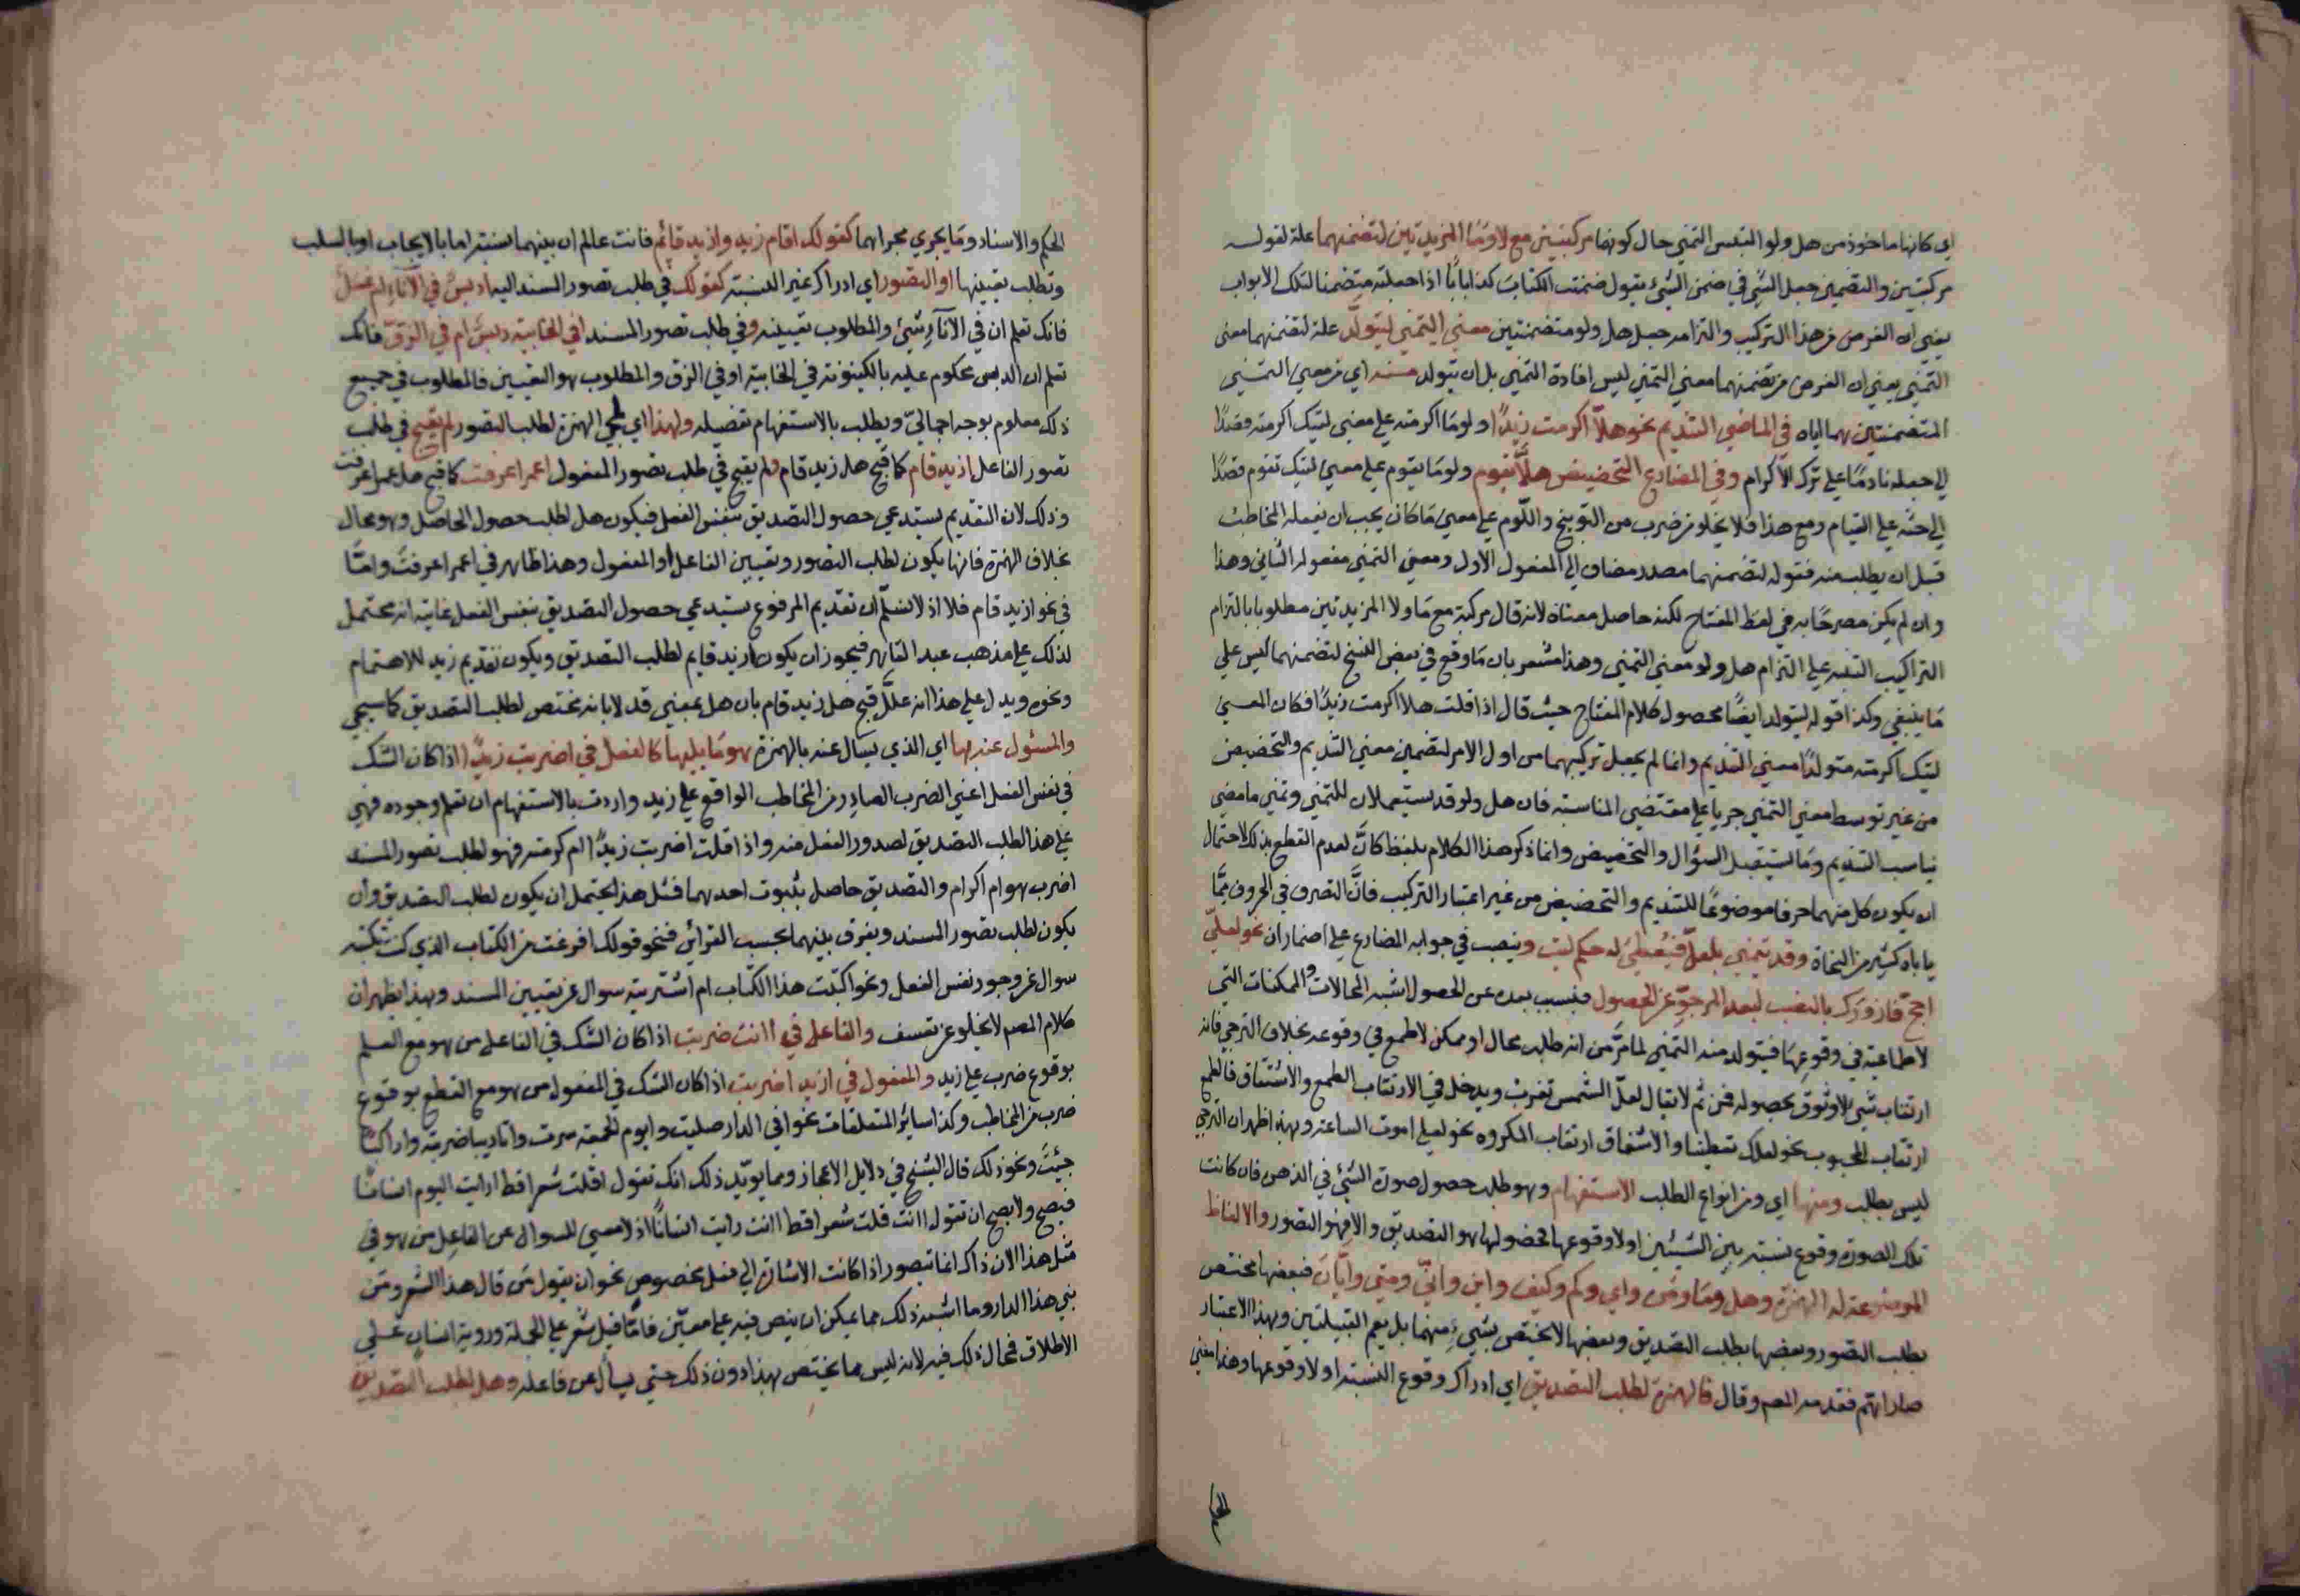 اي كانها ماخوذ من هل ولو التبس التمني حال كونهما مركبتين مع لا وما المزيدتين لتضمنهما علة لقوله
مركبتين والتضمين جعل الشي في ضمن الشئ يقول ضمنت الكتاب كذا بابا اذا جعلته متضمنا لتلك الابواب
يعني ان الغرض من هذا التركيب والتزامه جعل هل ولو متضمنتين معني التمني ليتولد علة لتضمنهما معنى
التمني يعني ان الغرض من تضمنهما معني التمني ليس افادة التمني بل ان يتولد منه اي من معني التمني
المتضمنتين هما اياه في الماضي التنديم نحو هلا اكرمت زيدا ولو ما اكرمته علي معني ليتك اكرمته قصدا
الي جعله نادما علي ترك الاكرام وفي المضارع التحضيض هلا تقوم ولو ما يقوم علي معني ليتك تقوم قصدا
الي حثه علي القيام ومع هذا فلا يخلو من ضرب من التوبيخ واللوم علي معني ما كان يجب ان يفعله المخاطب
قبل ان يطلب منه فقوله لتضمنهما مصدر مضاف الي المفعول الاول ومعني التمني مفعوله الثاني وهذا
وان لم يكن مصرحا به في لفظ المفتاح لكنه حاصل معناه لانه قال مركبة مع ما ولا المزيدتين مطلوبا بالتزام
التراكيب التنبيه علي التزام هل ولو معني التمني وهذا مشعر بان ما وقع في بعض النسخ لتضمنهما ليس علي
ما ينبغي وكذا قوله ليتولد ايضا محصول كلام المفتاح حيث قال اذا قلت هلا اكرمت زيدا فكان المعني
ليتك اكرمته متولدا معني التنديم وانما لم يجعل تركيبهما من اول الامر لتضمين معني التنديم والتحضيض
من غير توسط معني التمني جريا علي مقتضي المناسبة فان هل ولو قد يستعملان للتمني وتمني ما مضي
يناسب التنديم وما يستقبل السؤال والتحضيض وانما ذكر هذا الكلام بلفظ كان لعدم القطع بذلك لاحتمال
ان يكون كل منهما حرفا موضوعا للتنديم والتحضيض من غير اعتبار التركيب فان التصرف في الحروف مما
ياباه كثير من النحاة وقد يتمني بلعل فيعطي له حكم ليت وينصب في جوابه المضارع علي اضمار ان نحو لعلي
احج فازورك بالنصب لبعد المرجو عن الحصول فبسبب بعده عن الحصول اشبه المحالات والممكنات التي
لا طماعية في وقوعها فيتولد منه التمني لما مر من انه طلب محال او ممكن لا طمع في وقوعه بخلاف الترجي فانه
ارتقاب شي لا وثوق بحصوله فمن ثم لا يقال لعل الشمس تغرب ويدخل في الارتقاب الطمع والاشفاق فالطمع
ارتقاب المحبوب نحو لعلك تعطينا والاشفاق ارتقاب المكروه نحو لعلي اموت الساعة وبهذا ظهر ان الترجي
ليس بطلب ومنها اي ومن انواع الطلب الاستفهام وهو طلب حصول صورة الشئ في الذهن فان كانت
تلك الصورة وقوع نسبة بين الشيئين اولا وقوعها فحصولها هو التصديق والا فهو التصور والالفاظ
الموضوعة له الهمزة وهل وما ومن واي وكم وكيف واين واني ومتي وايان فبعضها مختص
بطلب التصور وبعضها بطلب التصديق وبعضها لا يختص بشيء منهما بل يعم القبيلتين وبهذا الاعتبار
صار اهم فقدمه المص وقال فالهمزة لطلب التصديق اي ادراك وقوع النسبة اولا وقوعها وهذا معني
الحكم والاسناد وما يجري مجراهما كقولك اقام زيد وازيد قائم فانت عالم ان بينهما نسبة اما بالايجاب او بالسلب
وتطلب تعيينها او التصور اي ادراك غير النسبة كقولك في طلب تصور المسند اليه ادبس في الاناء ام عسل
فانك تعلم ان في الاناء شئ والمطلوب تعيينه وفي طلب تصور المسند افي الخابية دبسك ام في الزق فانك
تعلم ان الدبس محكوم عليه بالكينونة في الخابية او في الزق والمطلوب هو التعيين فالمطلوب في جميع
ذلك معلوم بوجه اجمالي ويطلب بالاستفهام تفصيله ولهذا اي لمجي الهمزة لطلب التصور لم يقبح في طلب
تصور الفاعل ازيد قام كما قبح هل زيد قام ولم يقبح في طلب تصور المفعول اعمرا عرفت كما قبح هل عمرا عرفت
وذلك لان التقديم يستدعي حصول التصديق بنفس الفعل فيكون هل لطلب حصول الحاصل وهو محال
بخلاف الهمزة فانها يكون لطلب التصور وتعيين الفاعل او المفعول وهذا ظاهر في اعمرا عرفت واما
في نحو ازيد قام فلا اذ لا نسلم ان تقديم المرفوع يستدعي حصول التصديق بنفس الفعل غايته انه محتمل
لذلك علي مذهب عبد القاهر فيجوز ان يكون ازيد قايم لطلب التصديق ويكون تقديم زيد للاهتمام
ونحوه ويدل علي هذا انه علل قبح هل زيد قام بان هل بمعني قد لا بانه مختص لطلب التصديق كما سيجي
والمسئول عنه بها اي الذي يسال عنه بالهمزة هو ما يليها كالفعل في اضربت زيدا اذا كان الشك
في نفس الفعل اعني الضرب الصادر من المخاطب الواقع علي زيد واردت بالاستفهام ان تعلم وجوده فهي
علي هذا لطلب التصديق لصدور الفعل منه واذا قلت اضربت زيدا ام اكرمته فهو لطلب تصور المسند
اضرب هو ام اكرام والتصديق حاصل بثبوت احدهما فمثل هذا يحتمل ان يكون لطلب التصديق وان
يكون لطلب تصور المسند ويفرق بينهما بحسب القرائن فنحو قولك افرغت من الكتاب الذي كنت تكتبه
سوال عن وجود نفس الفعل ونحو اكتبت هذا الكتاب ام اشتريته سوال عن تعيين المسند وبهذا يظهر ان
كلام المص لا يخلو عن تعسف والفاعل في اانت ضربت اذا كان الشك في الفاعل من هو مع العلم
بوقوع ضرب علي زيد والمفعول في ازيدا ضربت اذا كان الشك في المفعول من هو مع القطع بوقوع
ضرب من المخاطب وكذا ساير المتعلقات نحو افي الدار صليت وايوم الجمعة سرت واتاديبا ضربته واراكبا
جيئت ونحو ذلك قال الشيخ في دلايل الاعجاز ومما يويد ذلك انك تقول اقلت شعرا قط ارايت اليوم انسانا
فيصح ولا يصح ان تقول اانت قلت شعرا قط اانت رايت انسانا اذ لا معني للسوال عن الفاعل من هو في
مثل هذا لان ذاك انما يتصور اذا كانت الاشارة الي فعل مخصوص نحو ان يقول من قال هذا الشعر ومن
بني هذا الدار وما اشبه ذلك مما يمكن ان ينص فيه علي معين فاما قيل شعر علي الجملة وروية انسان علي
الاطلاق فمحال ذلك فيه لانه ليس مما يختص بهذا دون ذلك حتي يسأل عن فاعله وهل لطلب التصديق